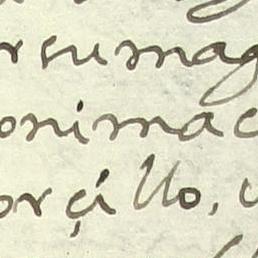 r su mag
onimac
orçillo, u